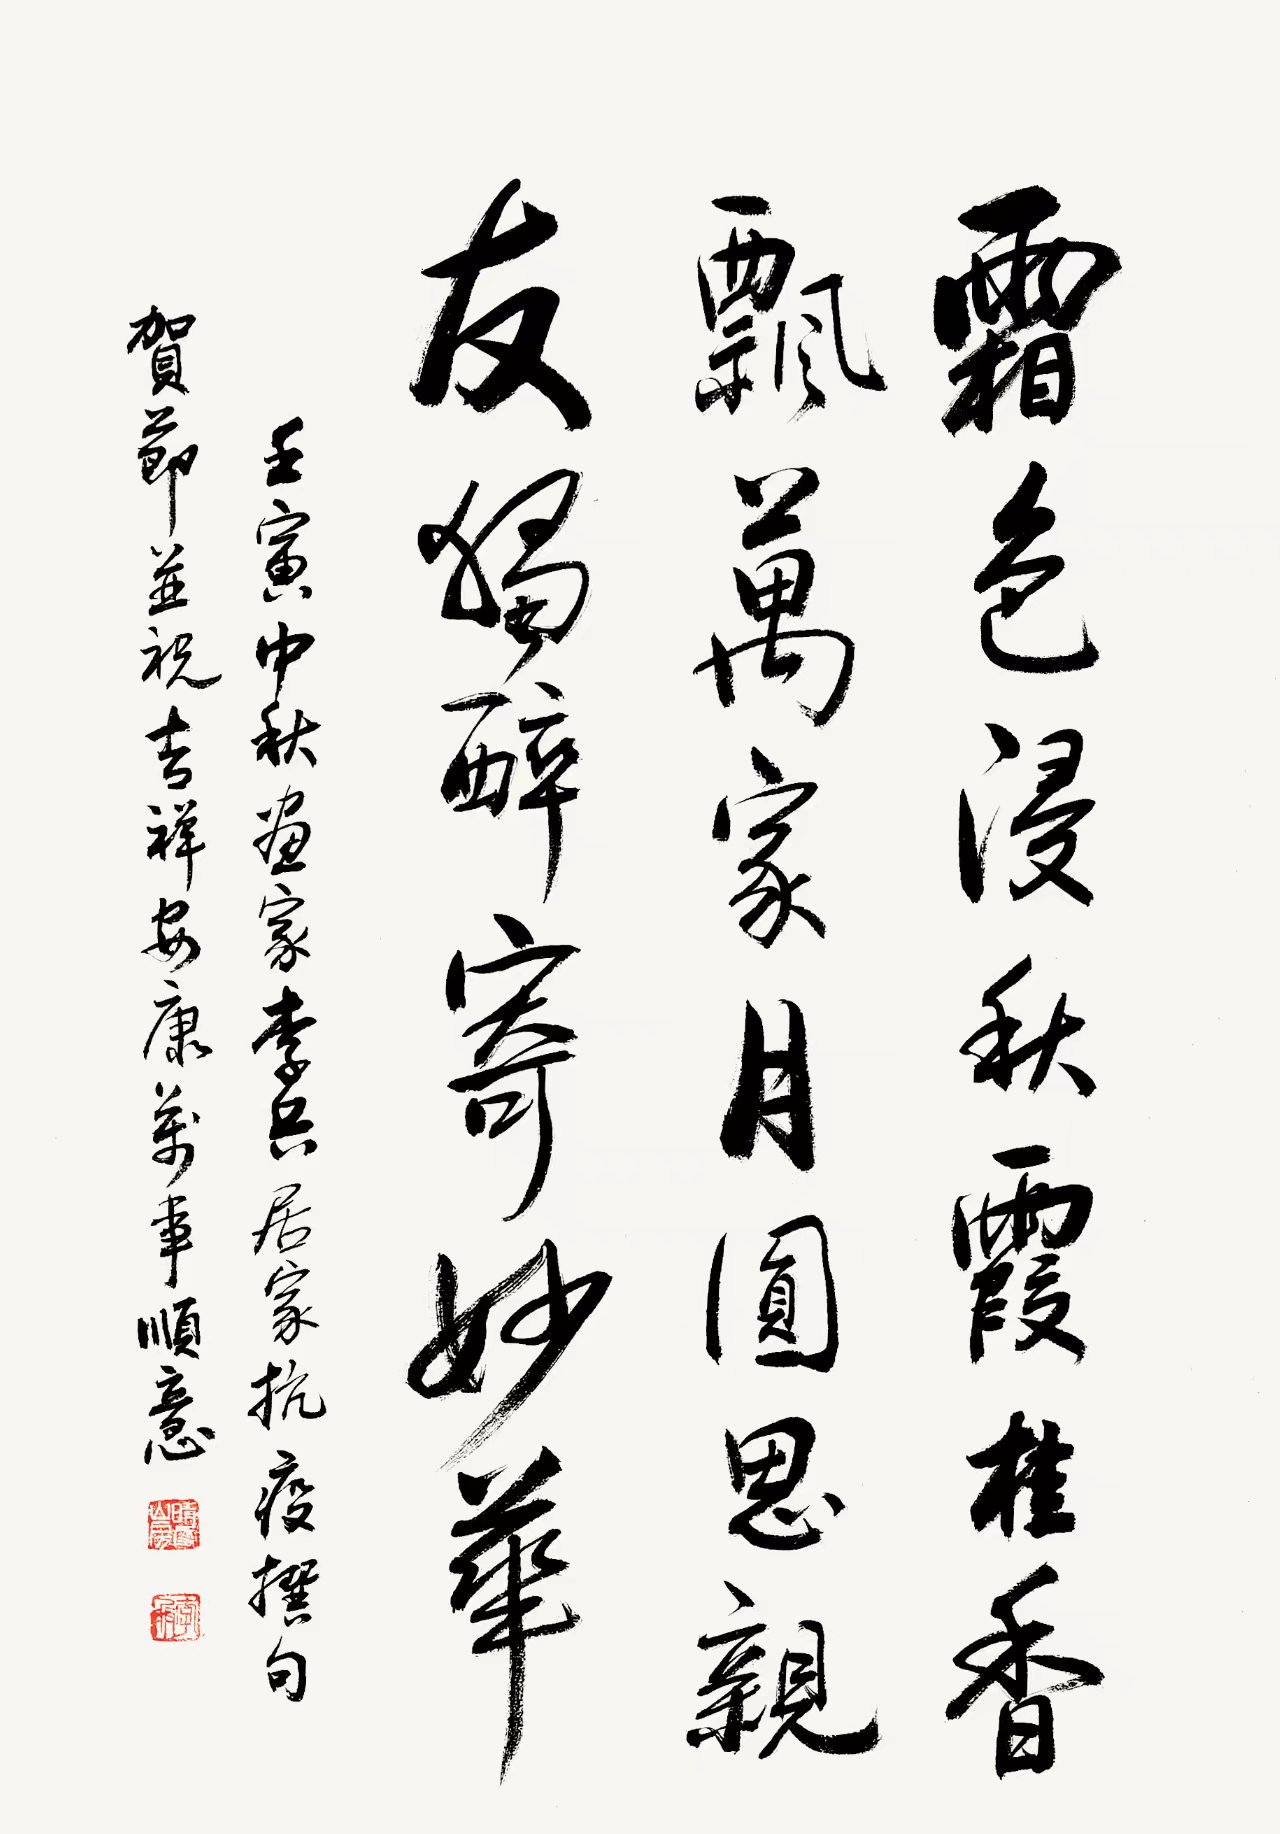 霜色浸秋霞桂香
飄萬家月圓思親
友獨醉寄妙華
壬寅中秋畫家李兵居家抗疫撰句
賀節並祝吉祥安康萬事順意